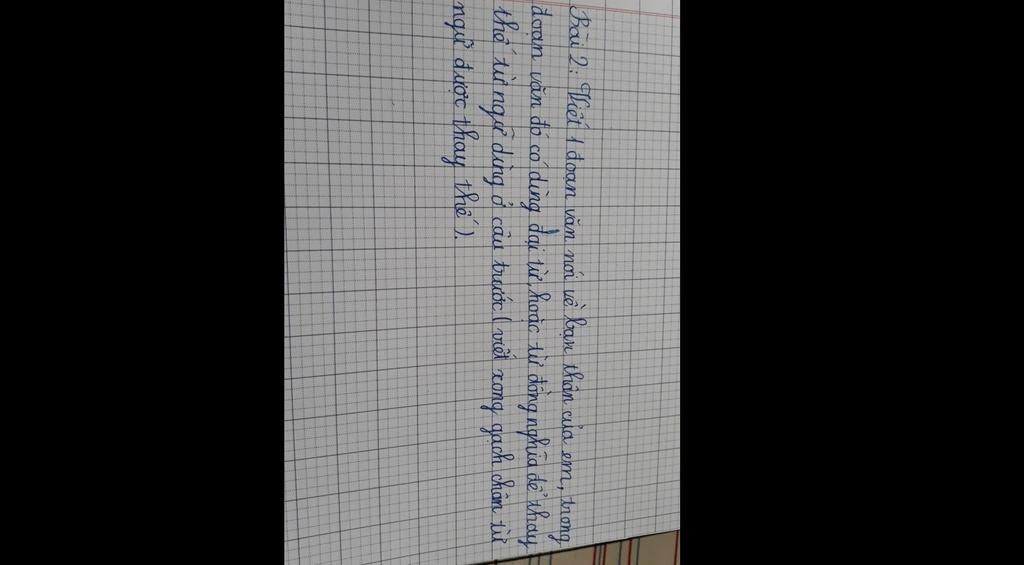 Bài 2: Viết 1 đoạn văn nói về bạn thân của em, trong
đoạn văn đó có dùng đại từ, hoặc từ đồng nghĩa để thay
thế từ ngữ dùng ở câu trước (viết xong gạch chân từ
ngữ được thay thế).